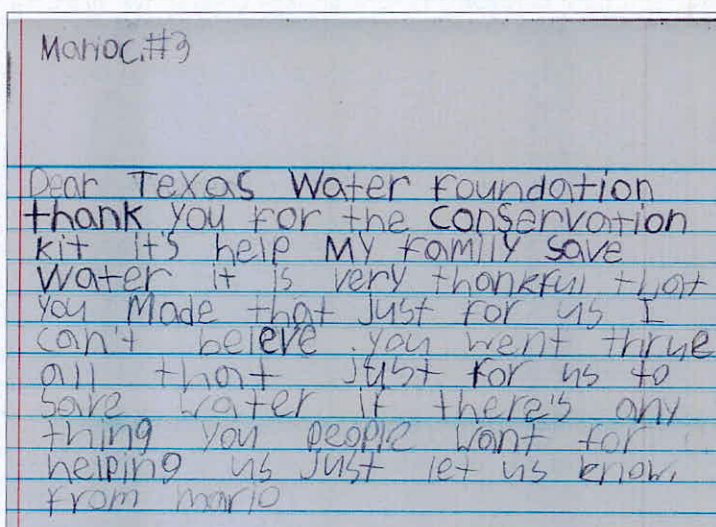 Mario C. #3
Dear Texas Water Foundation
thank you for the conservation
kit it's help My family save
Water it is very thankful that
you Made that Just for us I
can't beleve you went thrue
all that Just for us to
save water if there's any
thing you people want for
helping us Just let us know.
From mario